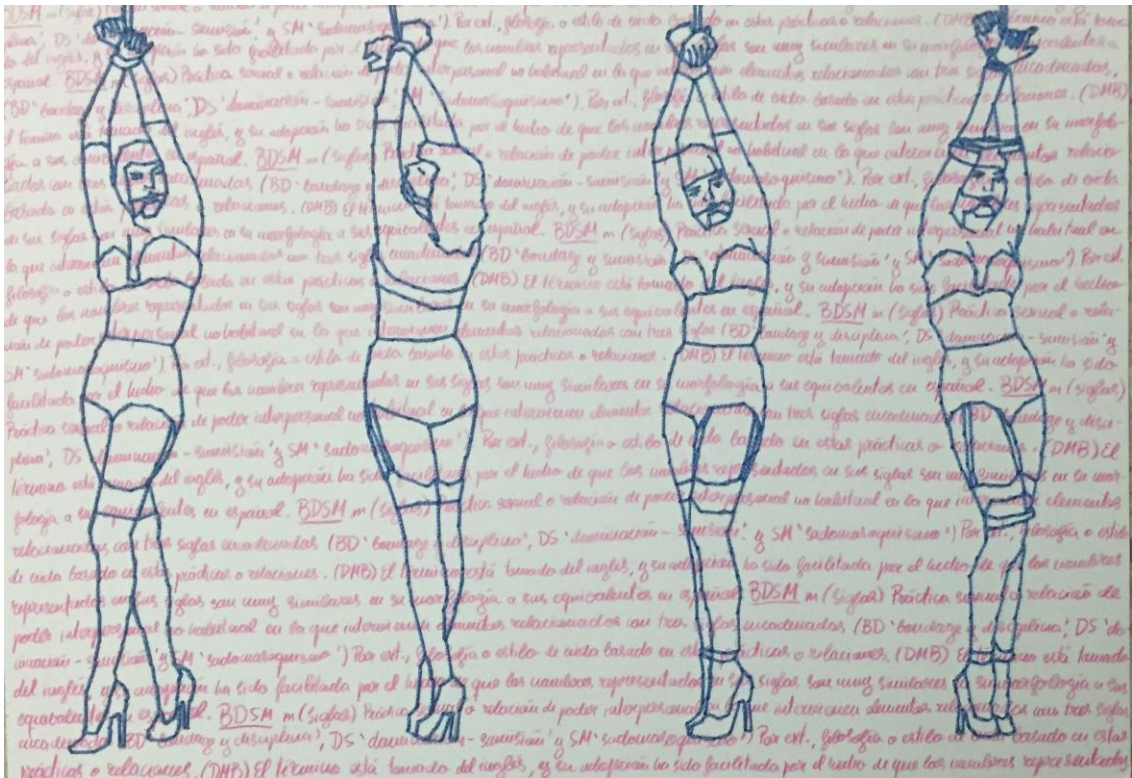 (siglas) Por ext., filosofía o estilo de vida en estas prácticas o relaciones. (DMB) está
DS y SM 'sadomasoquismo'). que los nombres representados en siglas son muy similares en su
do del inglés, y adopción ha sido facilitada por el
español. BDSM (siglas) Práctica sexual o relación de interpersonal no habitual en la que elementos relacionados con tres siglas encadenadas,
(BD 'bondage y disciplina', DS 'dominación - sumisión' SM 'sadomasoquismo'). Por ext., filosofía o estilo de vida basado en estas prácticas o relaciones. (DMB)
El término está tomado del inglés, y su adopción ha sido facilitada por el hecho de que los nombres representados en sus siglas son muy similares en su morfolo-
gía a sus en español. BDSM m (siglas) Práctica sexual o relación de poder no habitual en la que elementos relacio-
nados con tres encadenadas (BD 'bondage y disciplina', DS 'dominación - sumisión' y SM 'sadomasoquismo'). Por ext., filosofía o estilo de vida
basado en estas prácticas o relaciones. (DMB) El término está tomado del inglés, y su adopción ha sido facilitada por el hecho de que los representados
en sus siglas son muy similares en su morfología a sus equivalentes en español. BDSM m (siglas) Práctica sexual o relación de poder interpersonal no habitual en
la que elementos relacionados con tres siglas (BD 'bondage y y SM 'sadomasoquismo'). Por ext.
filosofía o estilo basado en estas prácticas relaciones (DMB) El término está tomado inglés, y su adopción ha sido por el hecho
de que los nombres representados en sus siglas son muy en su morfología a sus equivalentes en español. BDSM m (siglas) Práctica sexual o rela-
ción de poder interpersonal no habitual en la que elementos relacionados con tres siglas (BD 'bondage y disciplina', DS 'dominación - sumisión' y
SM 'sadomasoquismo'). Por ext., filosofía o estilo de vida basado en estas prácticas o relaciones. (DMB) El término está tomado del inglés, y su adopción ha sido
facilitada por el hecho de que los nombres representados en sus siglas son muy similares en su morfología a sus equivalentes en español. BDSM m (siglas)
Práctica sexual o relación de poder interpersonal no habitual en la que intervienen elementos con tres siglas encadenadas (BD bondage y disci-
plina', DS 'dominación - sumisión' y SM 'sadomasoquismo'). Por ext., filosofía o estilo de vida basado en estas prácticas o relaciones. (DMB) El
término está tomado del inglés, y su adopción ha sido facilitada por el hecho de que los nombres representados en sus siglas son muy similares en su mor-
fología a sus equivalentes en español. BDSM m (siglas) Práctica sexual o relación de poder interpersonal no habitual en la que elementos
relacionados con tres siglas encadenadas (BD 'bondage y disciplina', DS 'dominación - sumisión' y SM 'sadomasoquismo') Por ext., filosofía o estilo
de vida basado en estas prácticas o relaciones. (DMB) El término está tomado del inglés, y su adopción ha sido facilitada por el hecho de que los nombres
representados en sus siglas son muy similares en su morfología a sus equivalentes en español BDSM m (siglas) Práctica sexual o relación de
poder interpersonal no habitual en la que intervienen elementos relacionados con tres siglas encadenadas (BD 'bondage y disciplina', DS 'do-
minación - sumisión' y SM 'sadomasoquismo') Por ext., filosofía o estilo de vida basado en estas prácticas o relaciones. (DMB) El término está tomado
del inglés, y su adopción ha sido facilitada por el hecho que los nombres representados en sus siglas son muy similares en su morfología a sus
equivalentes en español. BDSM m (siglas) Práctica sexual o relación de poder interpersonal en que intervienen elementos relacionados con tres siglas
encadenadas (BD 'bondage y disciplina', DS 'dominación - sumisión' y SM 'sadomasoquismo') Por ext., filosofía o estilo de vida basado en estas
prácticas o relaciones. (DMB) El término está tomado del inglés, y su adopción ha sido facilitada por el hecho de que los nombres representados